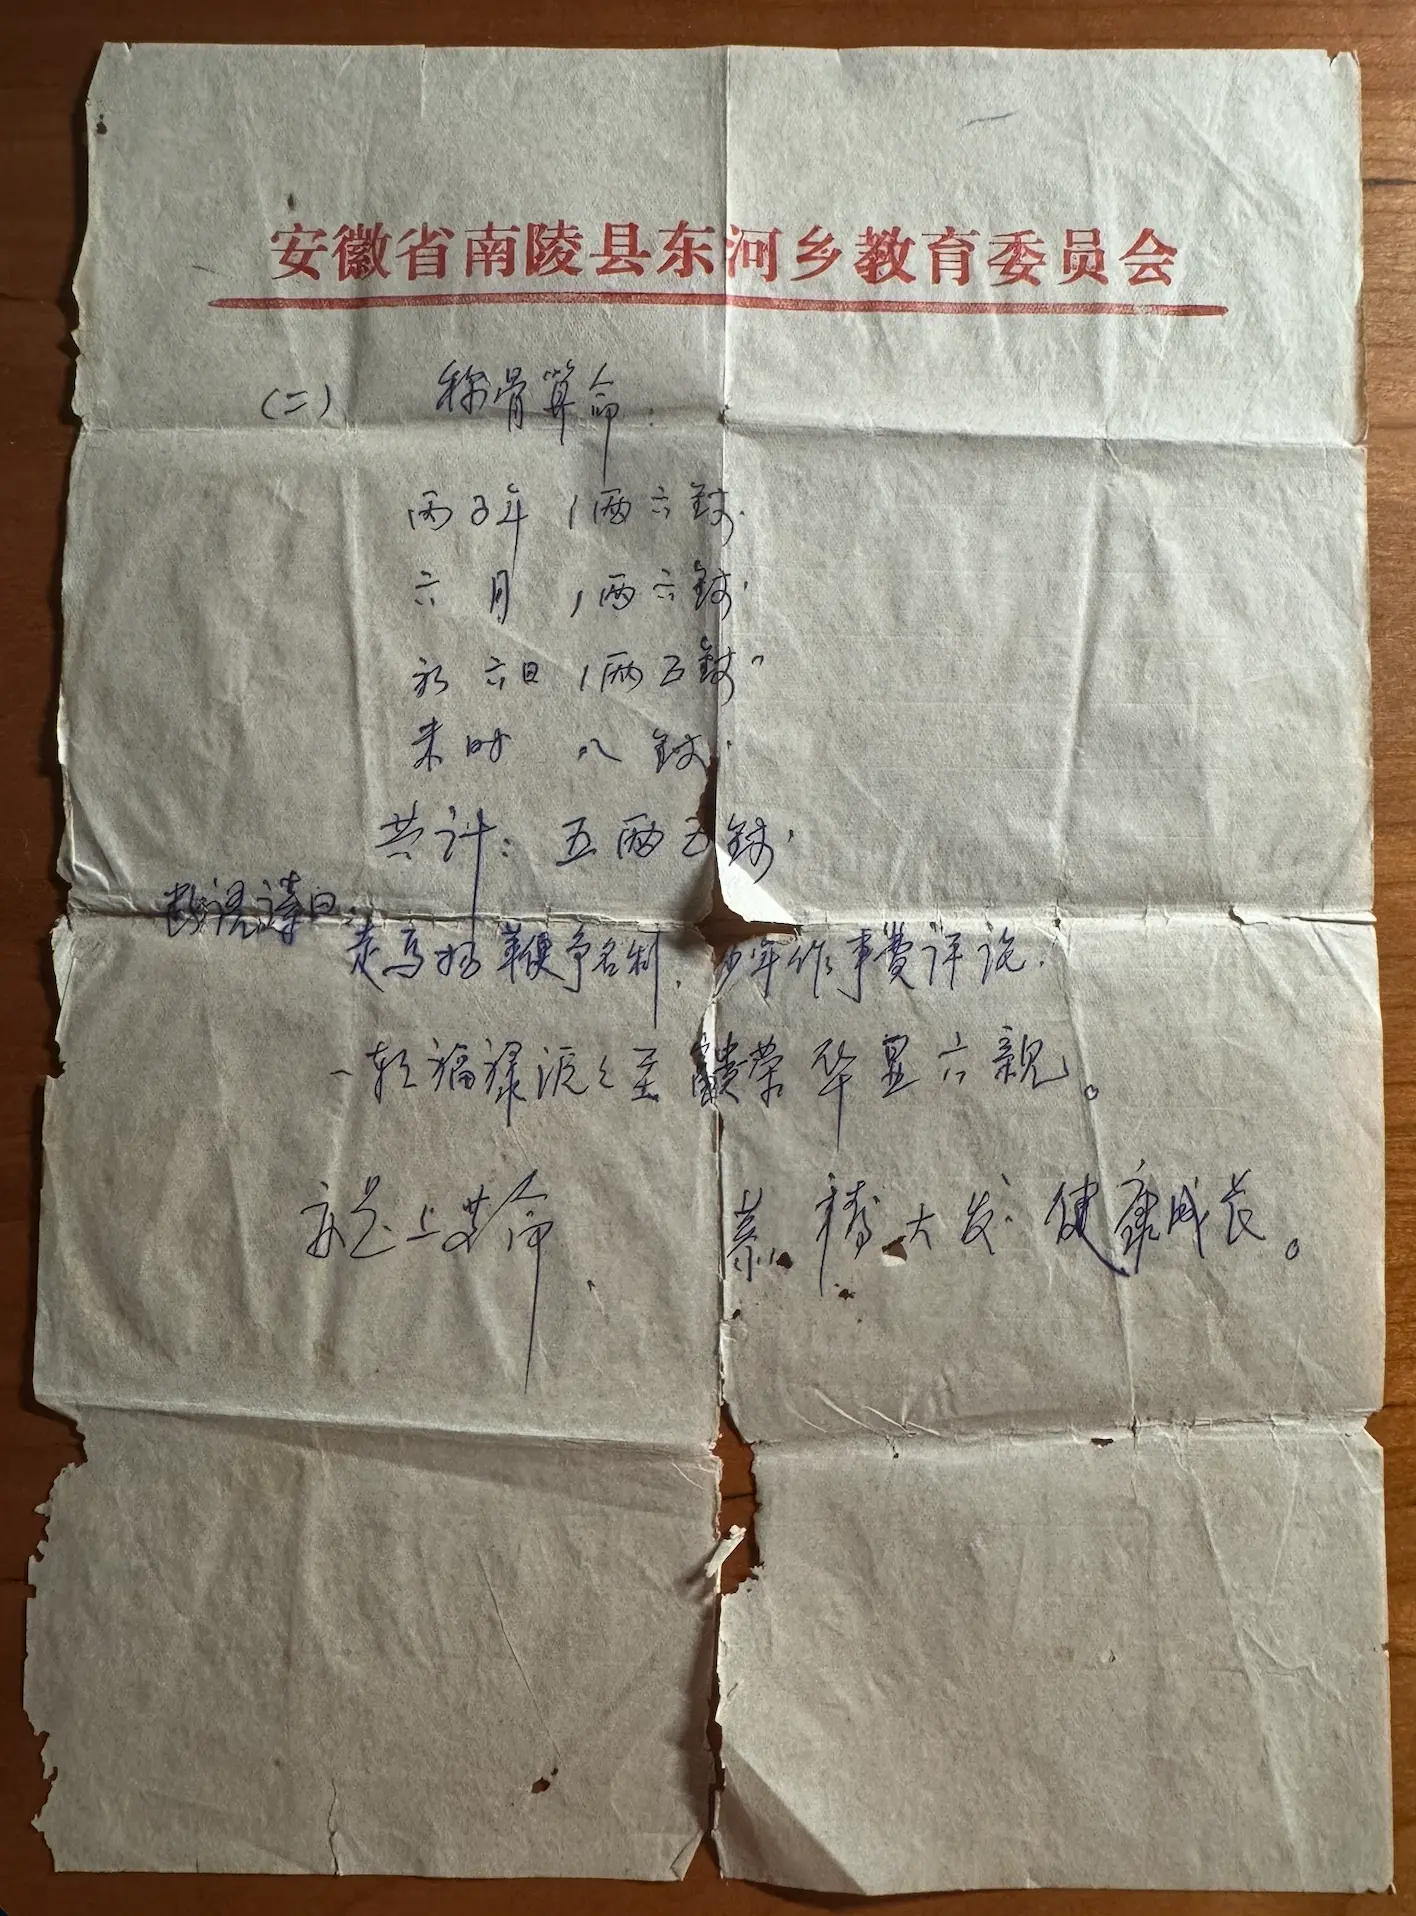 安徽省南陵县东河乡教育委员会
(二) 称骨算命.
丙子年 1两六钱.
六月 1两六钱.
初六日 1两五钱.
未时 八钱.
共计: 五两五钱.
断语诗曰:
走马扬鞭争名利, 少年作事费评论.
一朝福禄滚之至 富贵荣华显六亲。
 上算命. 大发. 健康成长。